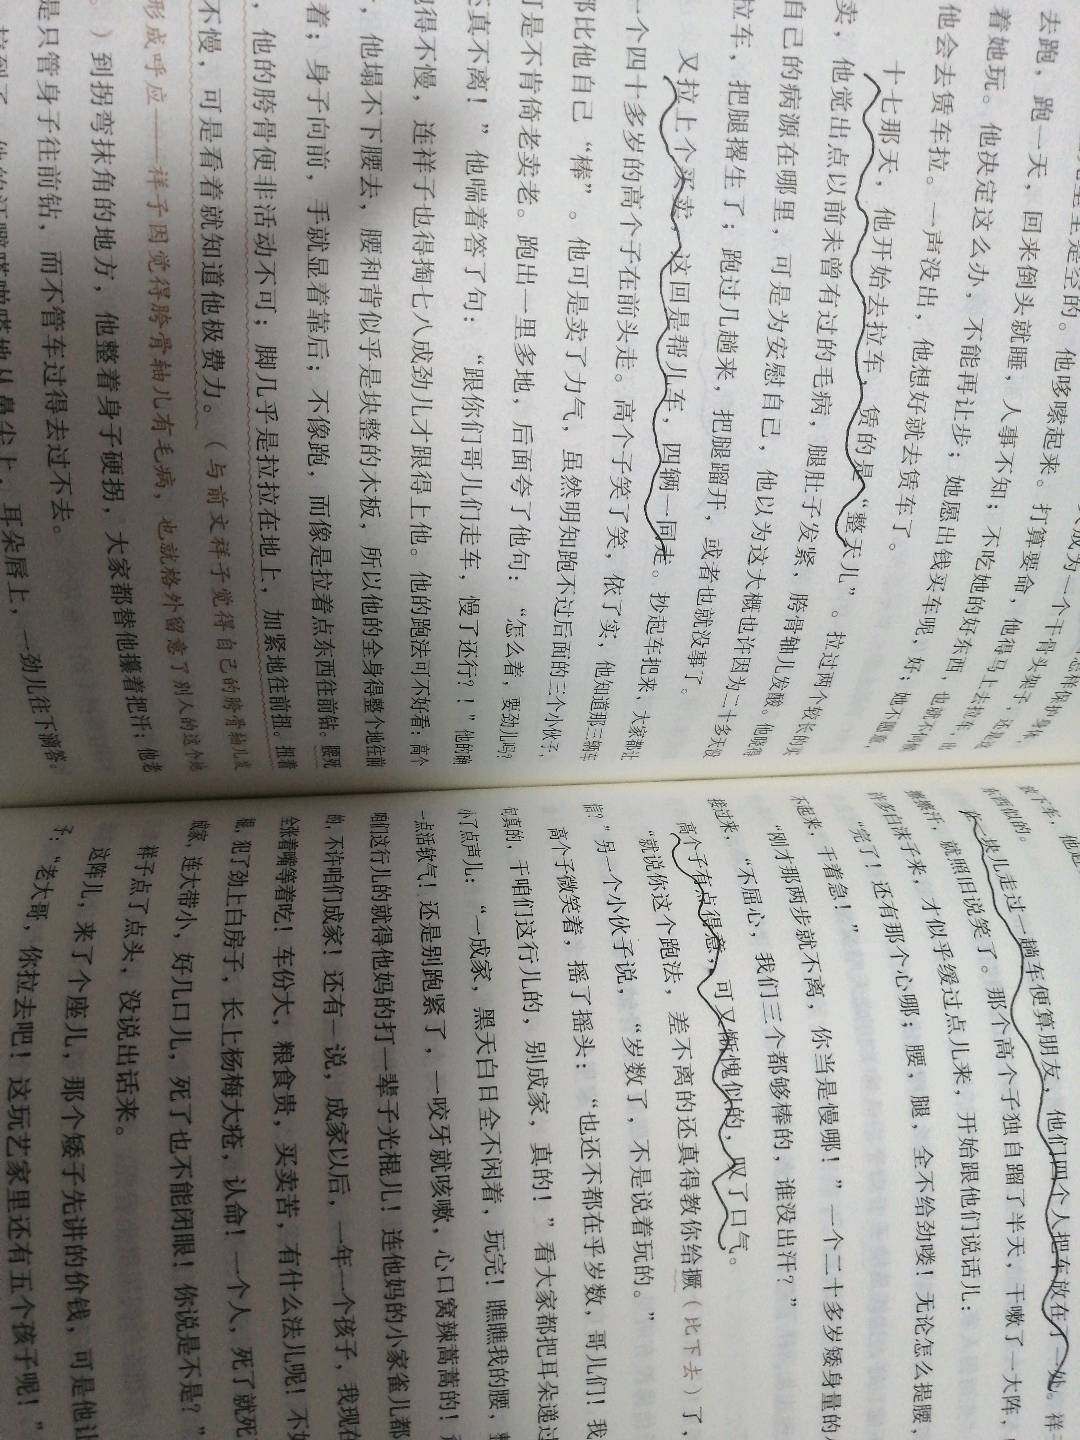 去跑，跑一天，回来倒头就睡，人事不知；不吃她的好东西，也就不伺候
着她玩。他决定这么办，不能再让步；她愿出钱买车呢，好；她不愿意，
他会去赁车拉。一声没出，他想好就去赁车了。
十七那天，他开始去拉车，赁的是“整天儿”。拉过两个较长的买
卖，他觉出点以前未曾有过的毛病，腿肚子发紧，胯骨轴儿发酸。他晓得
自己的病源在哪里，可是为安慰自己，他以为这大概也许因为二十多天没
拉车，把腿撂生了；跑过几趟来，把腿蹓开，或者也就没事了。
又拉上个买卖，这回是帮儿车，四辆一同走。抄起车把来，大家都让
一个四十多岁的高个子在前头走。高个子笑了笑，依了实，他知道那三辆车
都比他自己“棒”。他可是卖了力气，虽然明知跑不过后面的三个小伙子，
可是不肯倚老卖老。跑出一里多地，后面夸了他句：“怎么着，要劲儿吗？
还真不离！”他喘着答了句：“跟你们哥儿们走车，慢了还行？！”他的确
跑得不慢，连祥子也得掏七八成劲儿才跟得上他。他的跑法可不好看：高个
，他塌不下腰去，腰和背似乎是块整的木板，所以他的全身得整个地往前
着；身子向前，手就显着靠后；不像跑，而像是拉着点东西往前钻。腰死
，他的胯骨便非活动不可；脚几乎是拉拉在地上，加紧地往前扭。扭着
不慢，可是看着就知道他极费力。（与前文祥子觉得自己的胯骨轴儿发
形成呼应——祥子因觉得胯骨轴儿有毛病，也就格外留意了别人的这个地
。）到拐弯抹角的地方，他整着身子硬拐，大家都替他攥着把汗；他老
是只管身子往前钻，而不管车过得去过不去。
鼻尖上，耳朵唇上，一劲儿往下滴答。
放下车，他
东西似的。
在一块儿走过一趟车便算朋友，他们四个人把车放在了一处。祥
擦擦汗，就照旧说笑了。那个高个子独自蹓了半天，干嗽了一大阵，
许多白沫子来，才似乎缓过点儿来，开始跟他们说话儿：
“完了！还有那个心哪；腰，腿，全不给劲喽！无论怎么提腰，
不起来；干着急！”
“刚才那两步就不离，你当是慢哪！”一个二十多岁矮身量的
接过来，“不屈心，我们三个都够棒的，谁没出汗？”
高个子有点得意，可又惭愧似的，叹了口气。
“就说你这个跑法，差不离的还真得教你给撅（比下去）了，
信？”另一个小伙子说，“岁数了，不是说着玩的。”
高个子微笑着，摇了摇头：“也还不都在乎岁数，哥儿们！我
句真的，干咱们这行儿的，别成家，真的！”看大家都把耳朵递过
小了点声儿：“一成家，黑天白日全不闲着，玩完！瞧瞧我的腰，整
一点活软气！还是别跑紧了，一咬牙就咳嗽，心口窝辣蒿蒿的！
咱们这行儿的就得他妈的打一辈子光棍儿！连他妈的小家雀儿都
的，不许咱们成家！还有一说，成家以后，一年一个孩子，我现在
全张着嘴等着吃！车份大，粮食贵，买卖苦，有什么法儿呢！不如
棍，犯了劲上白房子，长上杨梅大疮，认命！一个人，死了就死
成家，连大带小，好几口儿，死了也不能闭眼！你说是不是？”
祥子点了点头，没说出话来。
这阵儿，来了个座儿，那个矮子先讲的价钱，可是他让
子：“老大哥，你拉去吧！这玩艺家里还有五个孩子呢！”